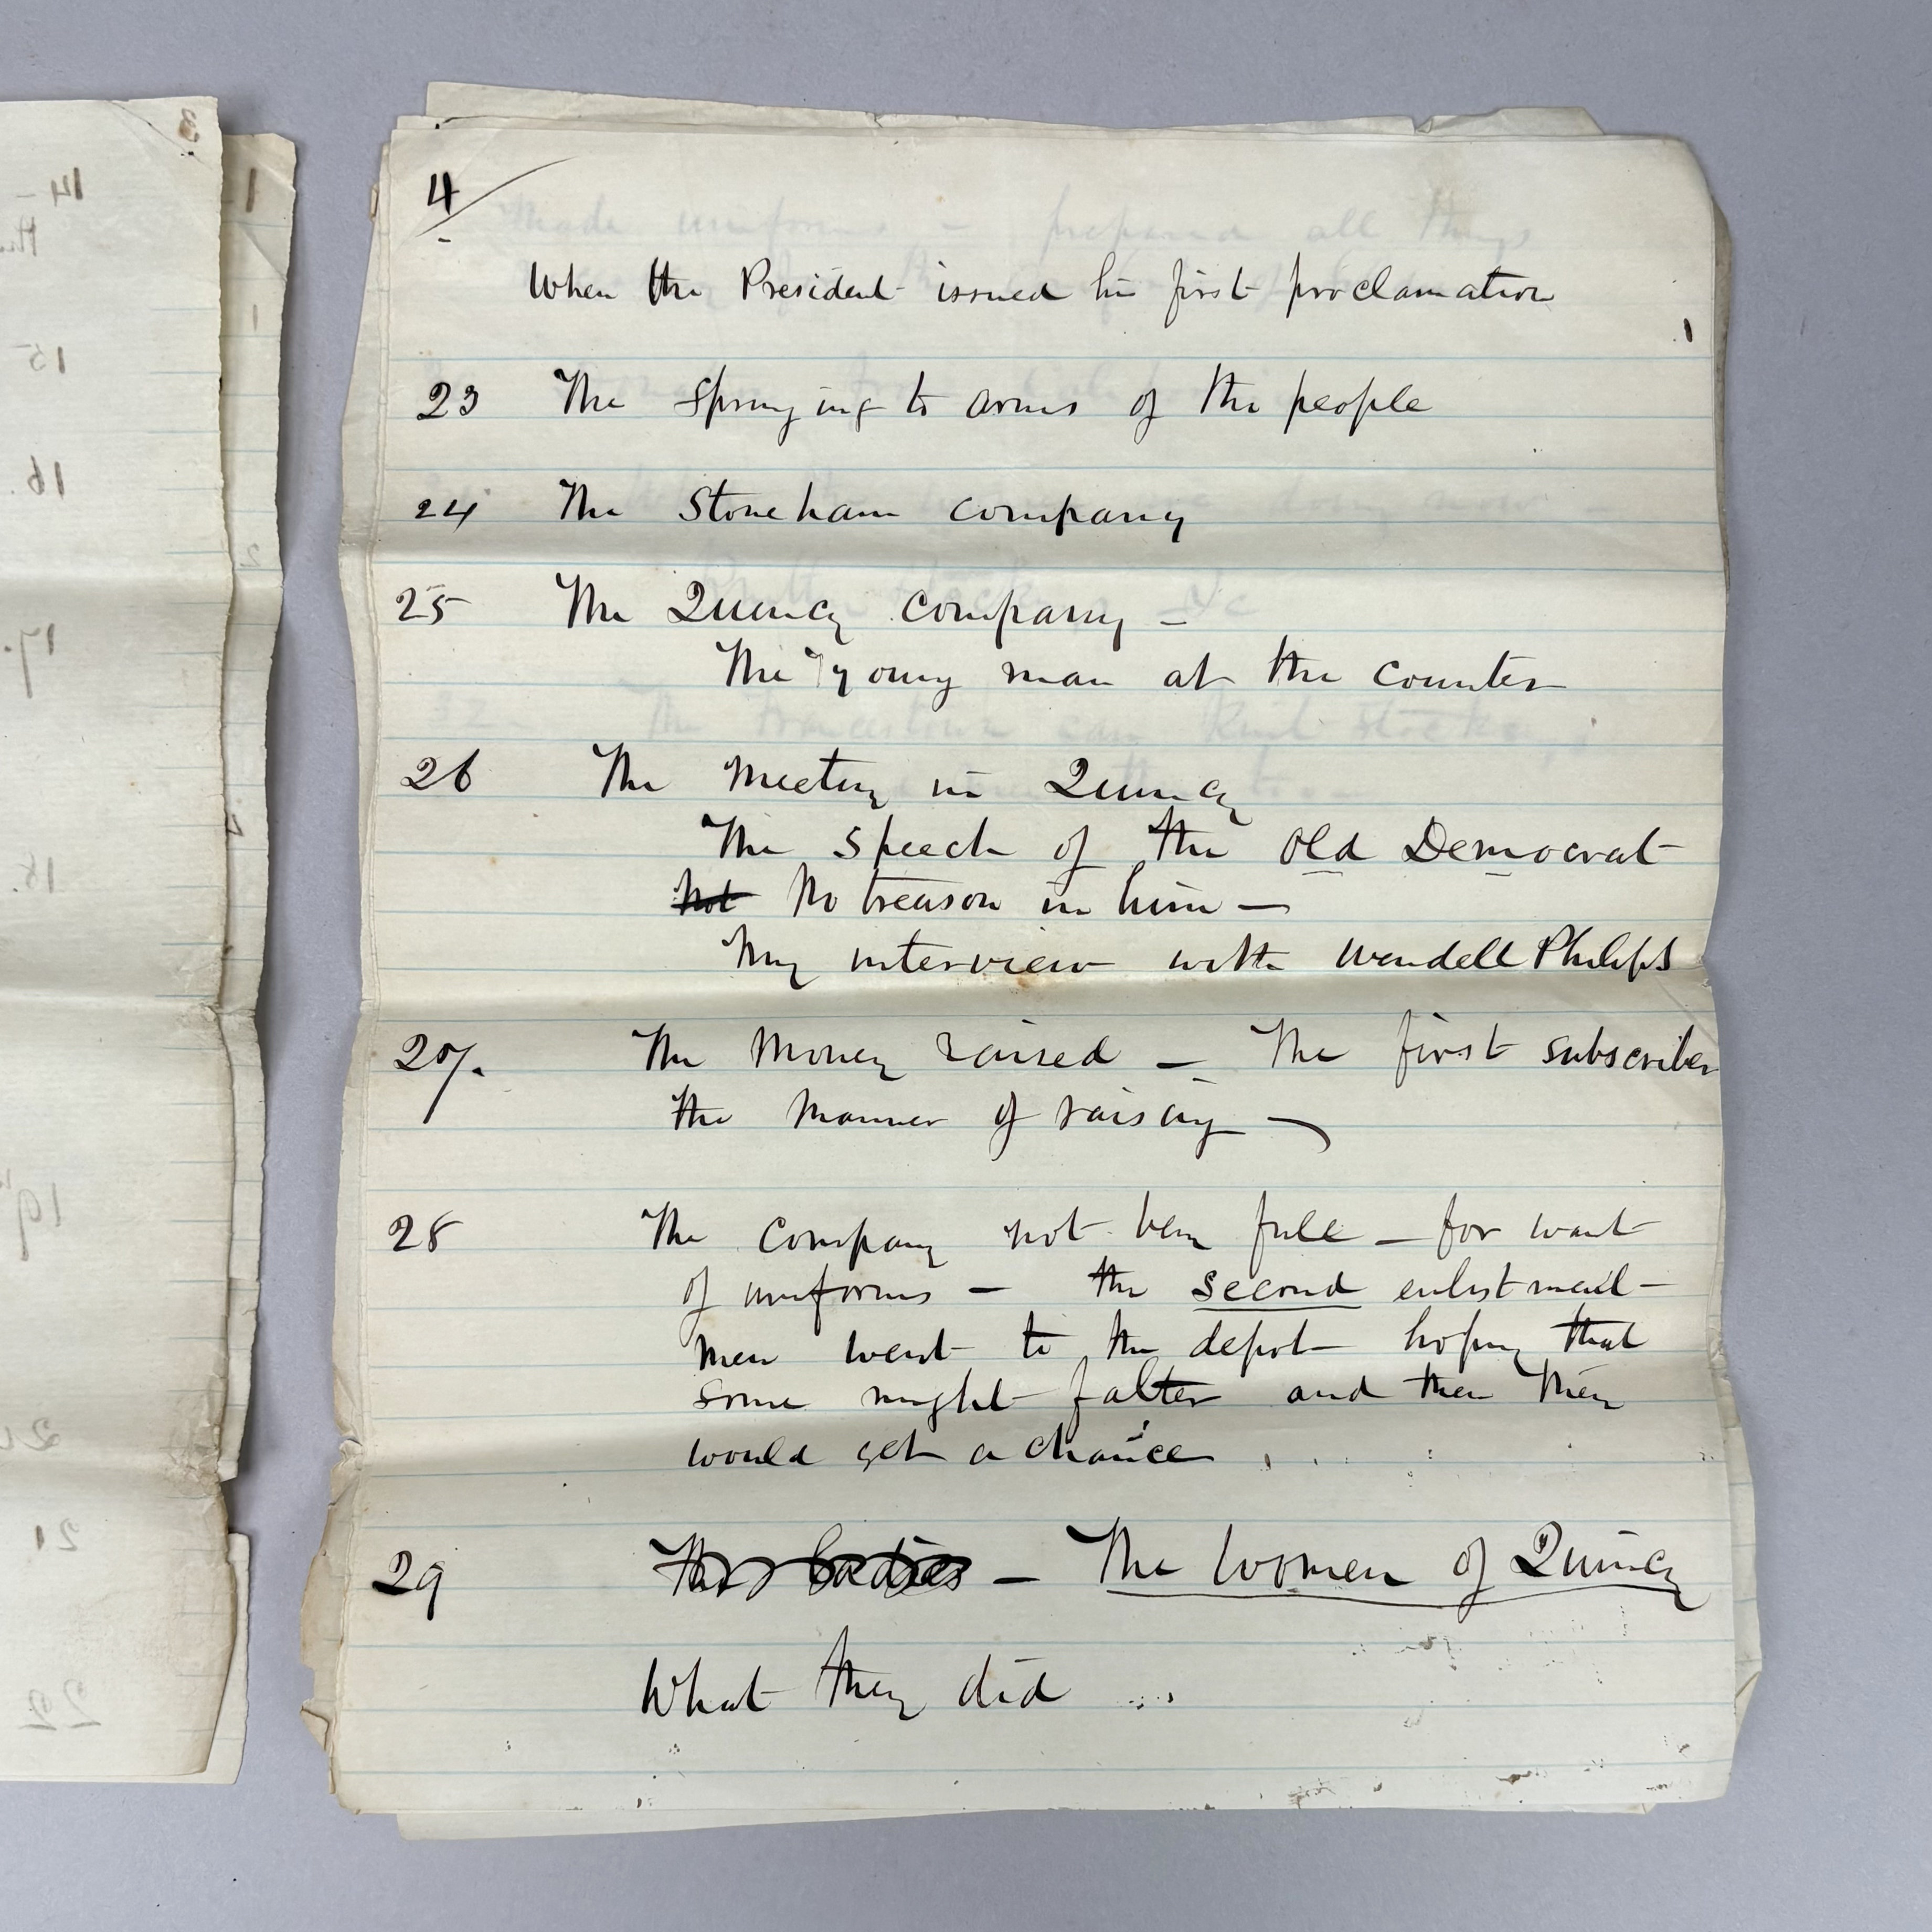 3
14 -
15
16.
17.
18.
19
21
22
1
2
4
When the President issued his first proclamation
23 The Springing to arms of the people
24 The Stoneham company
25 The Quincy company -
The young man at the counter
26 The Meeting in Quincy
The speech of the Old Democrat
Not No treason in him -
My interview with Wendell Philips
27. The Money raised - The first subscriber
the manner of raising -
28 The Company not being full - for want
of uniforms - the second enlistment -
Men went to the depot hoping that
some might falter and then they
would get a chance.
29 The Ladies - The Women of Quincy
What they did ...
made uniforms - prepared all things